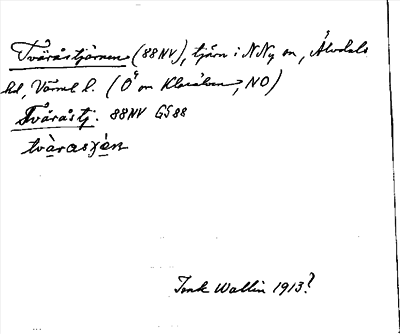 Tvåråstjärnen (88NV), tjärn i N Ny sn, Älvdals
hd, Värml l. (O om Klarälven, NO)
Tvåråstj. 88NV GS88
tvàrasjæ̀n
Tenk Wallin 1913?